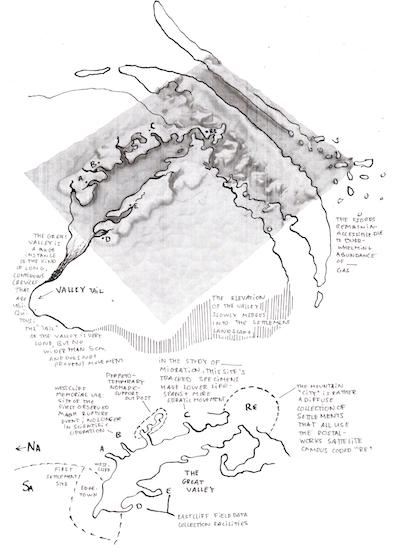 C
B
A
D
RE
THE GREAT
VALLEY IS
A HUGE
INSTANCE
OF THE KIND
OF LONG,
CONTINUOUS
CREVICES
THAT
ARE
UBI-
QUI
TOUS.
THE "TAIL"
OF THE VALLEY IS VERY
LONG, BUT NO
WIDER THAN 5CM
AND DOES NOT
PREVENT MOVEMENT
VALLEY TAIL
THE RIDGES
REMAIN IN-
ACCESSIBLE DUE
TO OVER-
WHELMING
ABUNDANCE
OF
GAS
THE ELEVATION
OF THE VALLEY
SLOWLY MERGES
INTO THE SETTLEMENT
LANDSCAPE
IN THE STUDY OF ____
MIGRATION, THIS SITE'S
TRACKED SPECIMENS
HAVE LOWER LIFE-
SPANS + MORE
ERRATIC MOVEMENT
PERMATO-
TEMPORARY
NOMADIC
SUPPORT
OUTPOST
WESTCLIFF
MEMORIAL LAB
SITE OF THE
FIRST OBSERVED
MAJOR RUPTURE
EVENT, NO LONGER
IN SCIENTIFIC
OPERATION
THE MOUNTAIN
"CITY" IS RATHER
A DIFFUSE
COLLECTION OF
SETTLEMENTS
THAT ALL USE
THE POSTAL-
WORKS SATELLITE
CAMPUS CODED "RE"
C
RE
B
A
← NA
SA
FIRST
SETTLEMENTS
SITE
WEST
CLIFF
EDGE
TOWN
THE
GREAT
VALLEY
E
D
EASTCLIFF FIELD DATA
COLLECTION FACILITIES